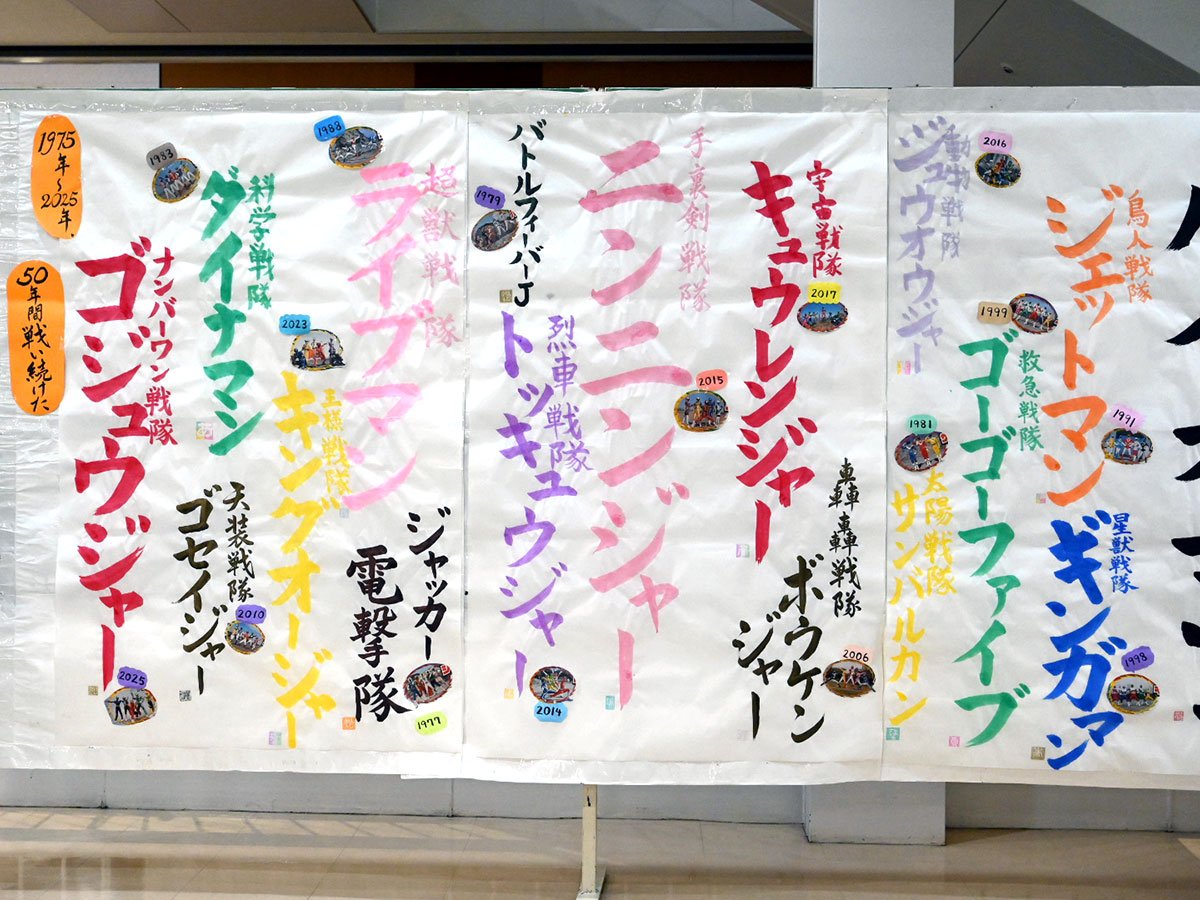 1975年〜2025年、
50年間戦い続けた
ナンバーワン戦隊
ゴジュウジャー
2025
1983
科学戦隊
ダイナマン
天装戦隊
ゴセイジャー
2010
2023
王様戦隊
キングオージャー
1988
超獣戦隊
ライブマン
ジャッカー
電撃隊
1977
バトルフィーバーJ
1979
烈車戦隊
トッキュウジャー
2014
手裏剣戦隊
ニンニンジャー
2015
宇宙戦隊
キュウレンジャー
2017
轟轟戦隊
ボウケン
ジャー
2006
動物戦隊
ジュウオウジャー
2016
1981
太陽戦隊
サンバルカン
1999
救急戦隊
ゴーゴーファイブ
鳥人戦隊
ジェットマン
1991
星獣戦隊
ギンガマン
1998